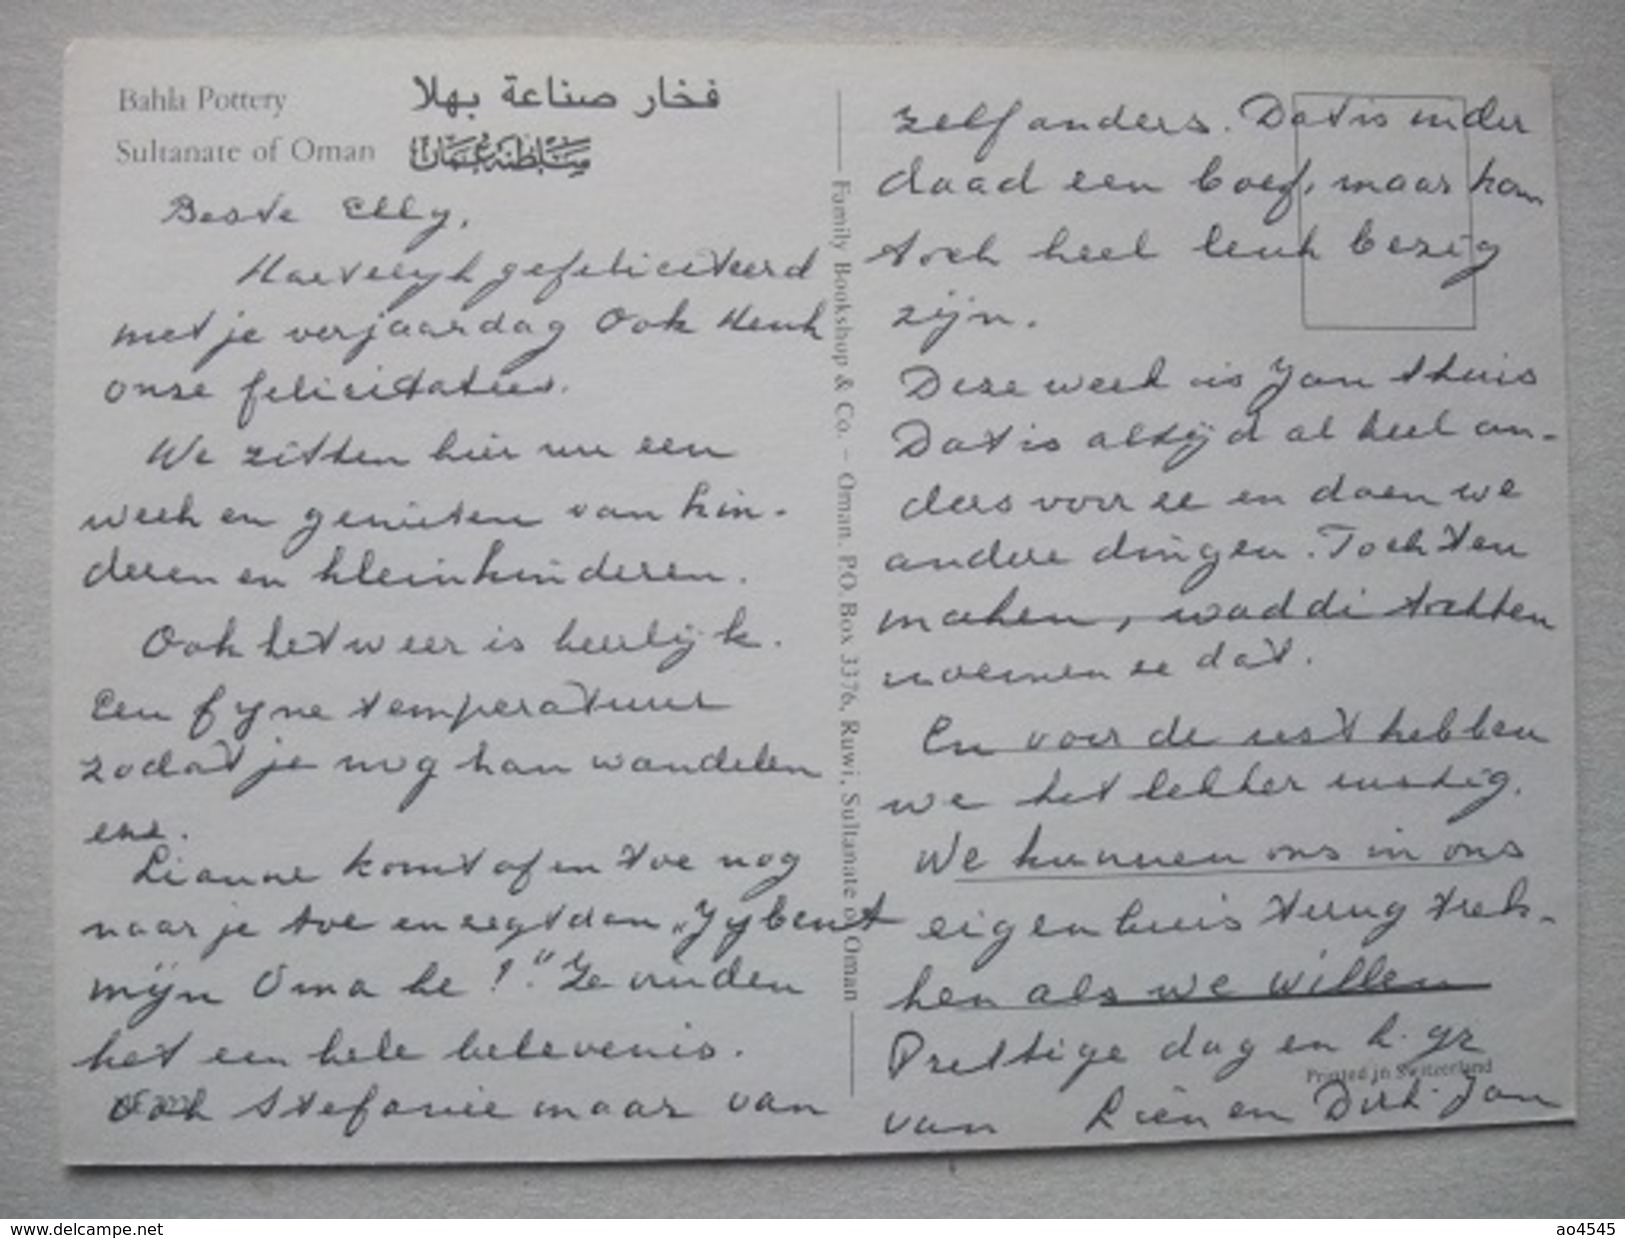 Bahla Pottery
فخار صناعة بهلا
Sultanate of Oman
سلطنة عمان
Beste Elly,
Hartelijk gefeliciteerd
met je verjaardag Ook Henk
onze felicitaties.
We zitten hier nu een
week en genieten van kin-
deren en kleinkinderen.
Ook het weer is heerlijk.
Een fijne temperatuur
zodat je nog kan wandelen
enz.
Lianne komt af en toe nog
naar je toe en zegt dan „Jij bent
mijn Oma he!." Ze vinden
het een hele belevenis.
Ook Stefanie maar van
Family Bookshop & Co. – Oman. P.O. Box 3376, Ruwi, Sultanate of Oman
zelf anders. Dat is inder
daad een boef, maar kan
toch heel leuk bezig
zijn.
Deze week is Jan thuis
Dat is altijd al heel an-
ders voor ze en doen we
andere dingen. Tochten
maken, waddi tochten
noemen ze dat.
En voor de rest hebben
we het lekker rustig.
We kunnen ons in ons
eigen huis terug trek-
ken als we willen
Prettige dag en h. gr
Printed in Switzerland
van Rien en Dirk-Jan
www.delcampe.net
ao4545